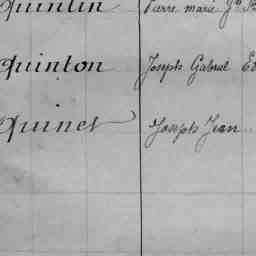 Quintin Pierre marie
Quinton Joseph Gabriel
Quinet Joseph Jean